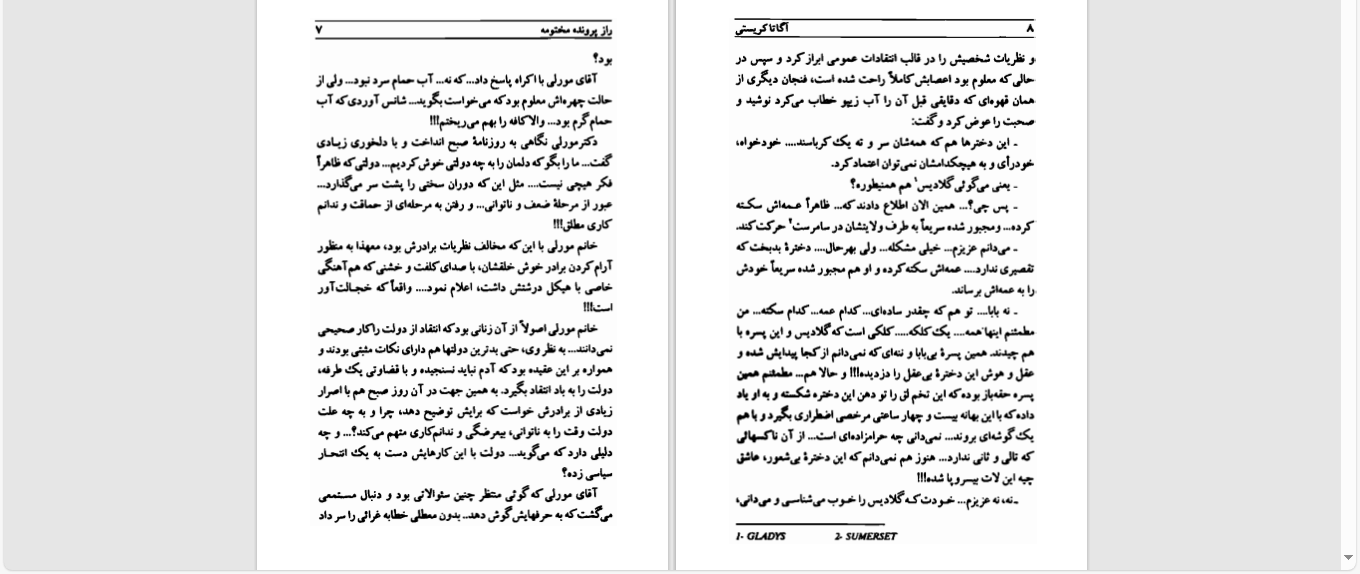 راز پرونده مختومه ۷
بود؟
آقای مورلی با اکراه پاسخ داد...که نه... آب حمام سرد نبود... ولی از
حالت چهره‌اش معلوم بود که می‌خواست بگوید... شانس آوردی که آب
حمام گرم بود... والا کافه را بهم می‌ریختم!!!
دکتر مورلی نگاهی به روزنامهٔ صبح انداخت و با دلخوری زیادی
گفت... ما را بگو که دلمان را به چه دولتی خوش کردیم... دولتی که ظاهراً
فکر هیچی نیست.... مثل این که دوران سختی را پشت سر می‌گذارد...
عبور از مرحلهٔ ضعف و ناتوانی... و رفتن به مرحله‌ای از حماقت و ندانم
کاری مطلق!!!
خانم مورلی با این که مخالف نظریات برادرش بود، معهذا به منظور
آرام کردن برادر خوش خلقشان، با صدای کلفت و خشنی که هم‌آهنگی
خاصی با هیکل درشتش داشت، اعلام نمود.... واقعاً که خجالت‌آور
است!!!
خانم مورلی اصولاً از آن زنانی بود که انتقاد از دولت را کار صحیحی
نمی‌دانند... به نظر وی، حتی بدترین دولتها هم دارای نکات مثبتی بودند و
همواره بر این عقیده بود که آدم نباید نسنجیده و با قضاوتی یک طرفه،
دولت را به باد انتقاد بگیرد. به همین جهت در آن روز صبح هم با اصرار
زیادی از برادرش خواست که برایش توضیح دهد، چرا و به چه علت
دولت وقت را به ناتوانی، بیعرضگی و ندانم‌کاری متهم می‌کند؟... و چه
دلیلی دارد که می‌گوید... دولت با این کارهایش دست به یک انتحار
سیاسی زده؟
آقای مورلی که گوئی منتظر چنین سئوالاتی بود و دنبال مستمعی
می‌گشت که به حرفهایش گوش دهد.. بدون معطلی خطابه غرائی را سر داد
۸ آگاتا کریستی
و نظریات شخصیش را در قالب انتقادات عمومی ابراز کرد و سپس در
حالی که معلوم بود اعصابش کاملاً راحت شده است، فنجان دیگری از
همان قهوه‌ای که دقایقی قبل آن را آب زیپو خطاب می‌کرد نوشید و
صحبت را عوض کرد و گفت:
ـ این دخترها هم که همه‌شان سر و ته یک کرباسند.... خودخواه،
خودرأی و به هیچکدامشان نمی‌توان اعتماد کرد.
ـ یعنی می‌گوئی گلادیس۱ هم همنیطوره؟
ـ پس چی؟... همین الان اطلاع دادند که... ظاهراً عمه‌اش سکته
کرده... ومجبور شده سریعاً به طرف ولایتشان در سامرست۲ حرکت کند.
ـ می‌دانم عزیزم... خیلی مشکله... ولی بهرحال.... دخترهٔ بدبخت که
تقصیری ندارد.... عمه‌اش سکته کرده و او هم مجبور شده سریعاً خودش
را به عمه‌اش برساند.
ـ نه بابا.... تو هم که چقدر ساده‌ای... کدام عمه... کدام سکته... من
مطمئنم اینها همه.... یک کلکه..... کلکی است که گلادیس و این پسره با
هم چیدند. همین پسرهٔ بی‌بابا و ننه‌ای که نمی‌دانم از کجا پیدایش شده و
عقل و هوش این دخترهٔ بی‌عقل را دزدیده!!! و حالا هم... مطمئنم همین
پسره حقه‌باز بوده که این تخم لق را تو دهن این دختره شکسته و به او یاد
داده که با این بهانه بیست و چهار ساعتی مرخصی اضطراری بگیرد و با هم
یک گوشه‌ای بروند... نمی‌دانی چه حرامزاده‌ای است... از آن ناکسهائی
که تالی و ثانی ندارد... هنوز هم نمی‌دانم که این دخترهٔ بی‌شعور، عاشق
چیه این لات بیسروپا شده!!!
ـ نه، نه عزیزم... خودت که گلادیس را خوب می‌شناسی و می‌دانی،
1- GLADYS 2- SUMERSET